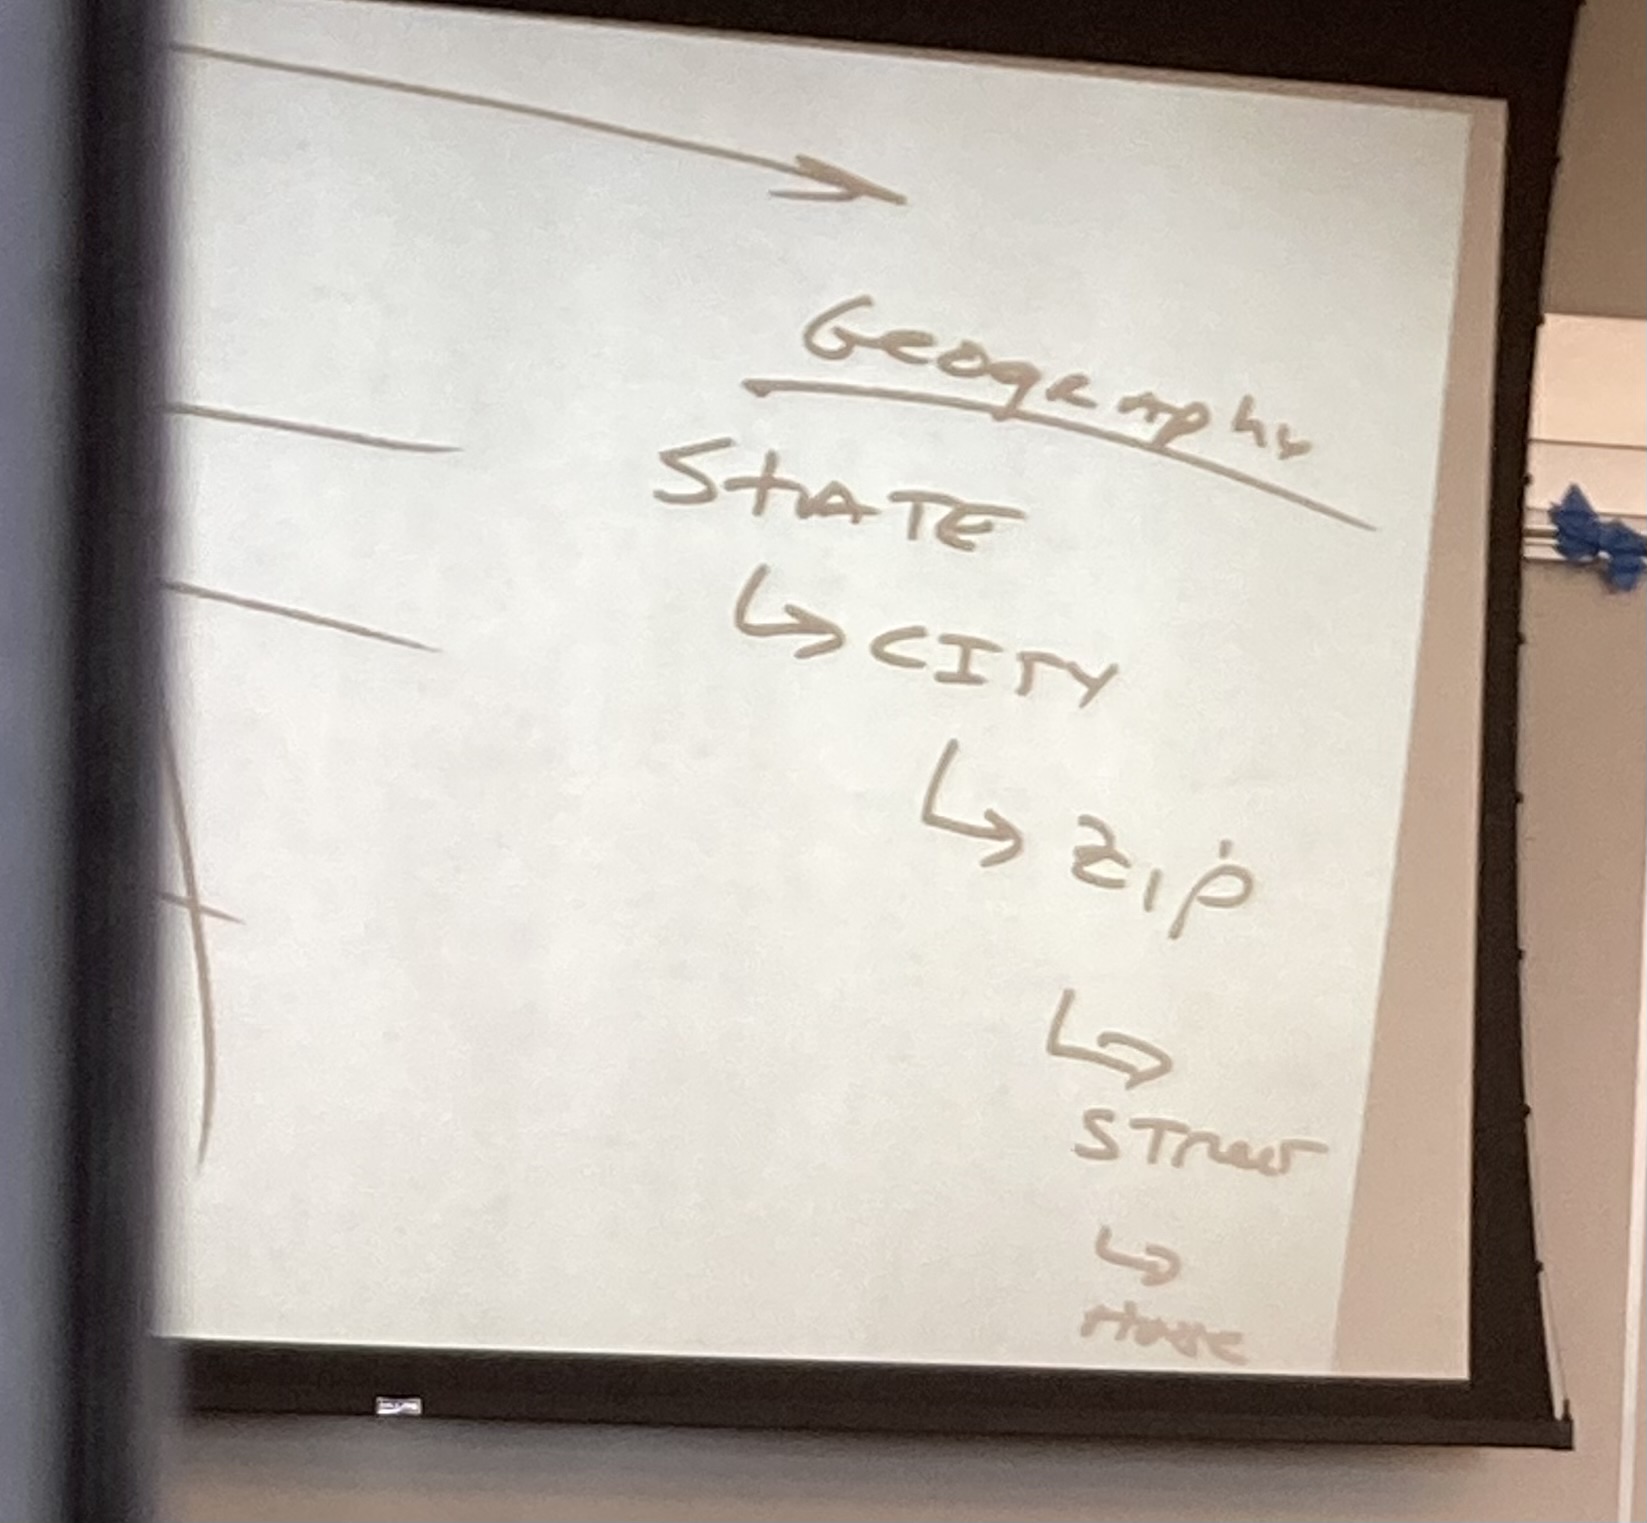 Geography
STATE
↳ CITY
↳ Zip
↳
STreet
↳
House